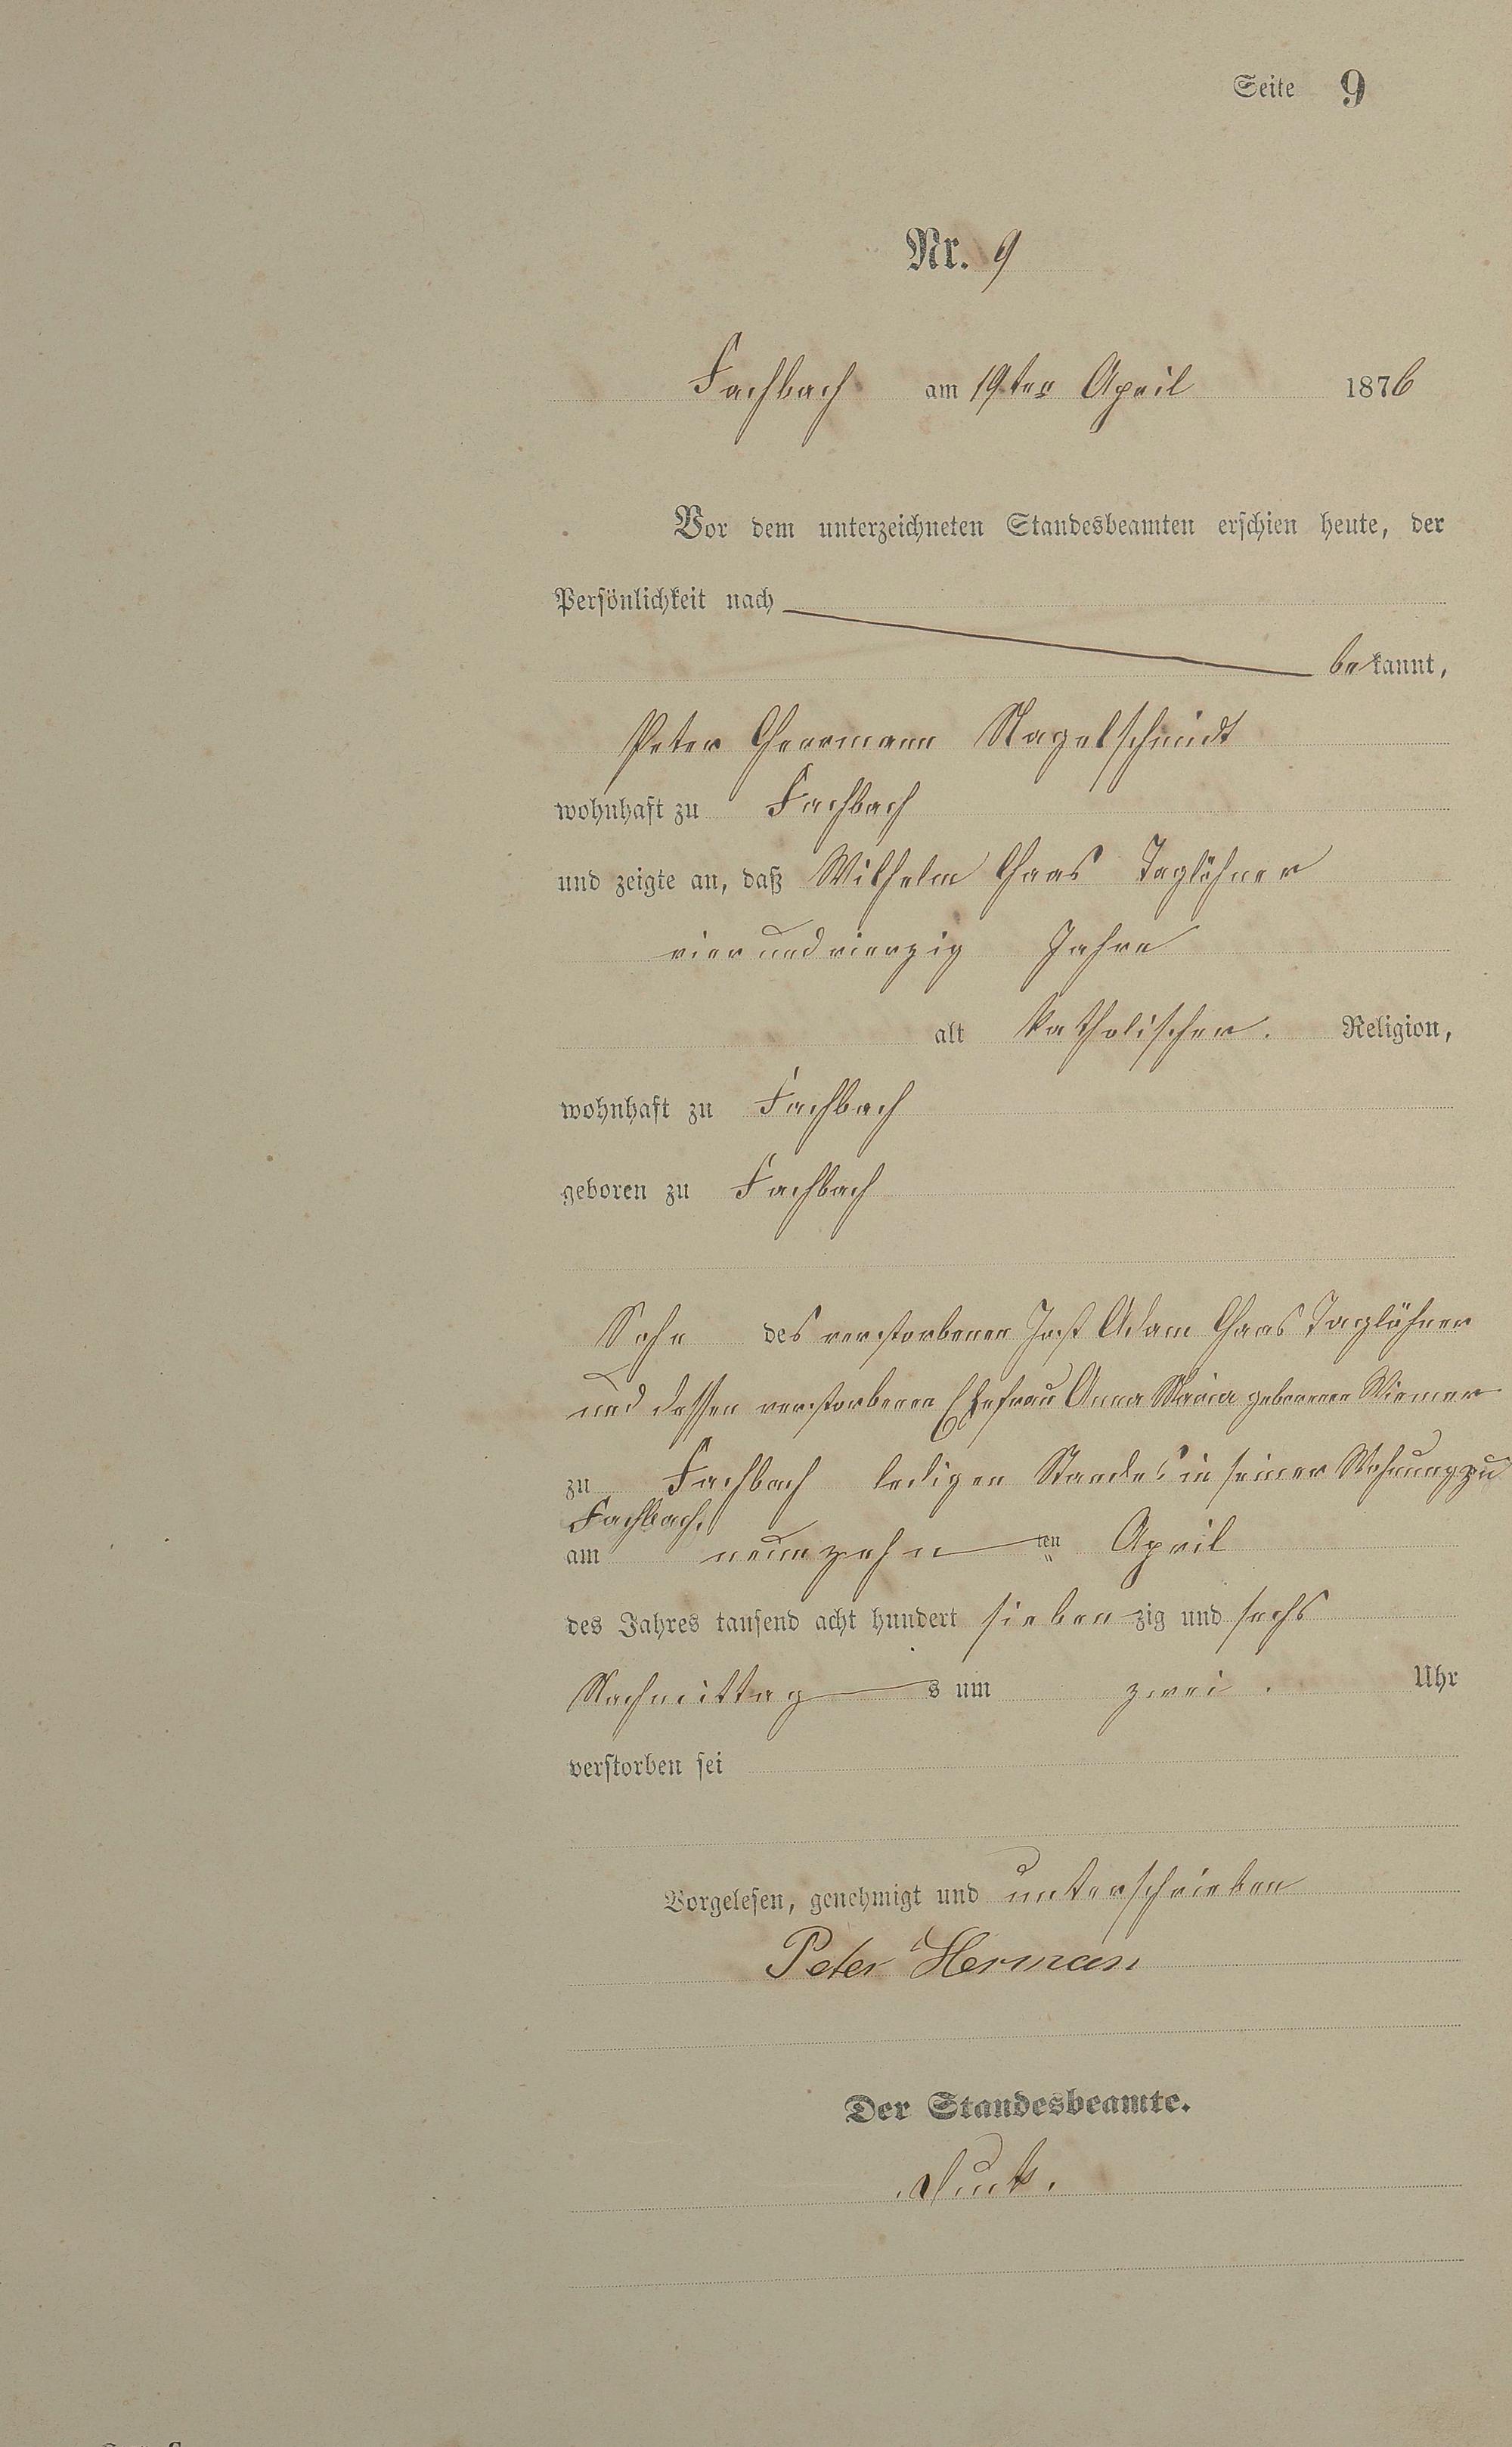 Seite 9
Nr. 9
Fachbach am 19ten April 1876
Vor dem unterzeichneten Standesbeamten erschien heute, der
Persönlichkeit nach
bekannt,
Peter Herrmann Nagelschmidt
wohnhaft zu Fachbach
und zeigte an, daß Wilhelm Haas Taglöhner
vier und vierzig Jahre
alt katholischer Religion,
wohnhaft zu Fachbach
geboren zu Fachbach
Sohn des verstorbenen Jost Adam Haas Taglöhner
und dessen verstorbenen Ehefrau Anna Maria geborenen Wiemer
zu Fachbach ledigen Standes in seiner Wohnung zu
Fachbach,
am neunzehnten April
des Jahres tausend acht hundert siebenzig und sechs
Nachmittags um zwei Uhr
verstorben sei
Vorgelesen, genehmigt und unterschrieben
Peter Herman
Der Standesbeamte.